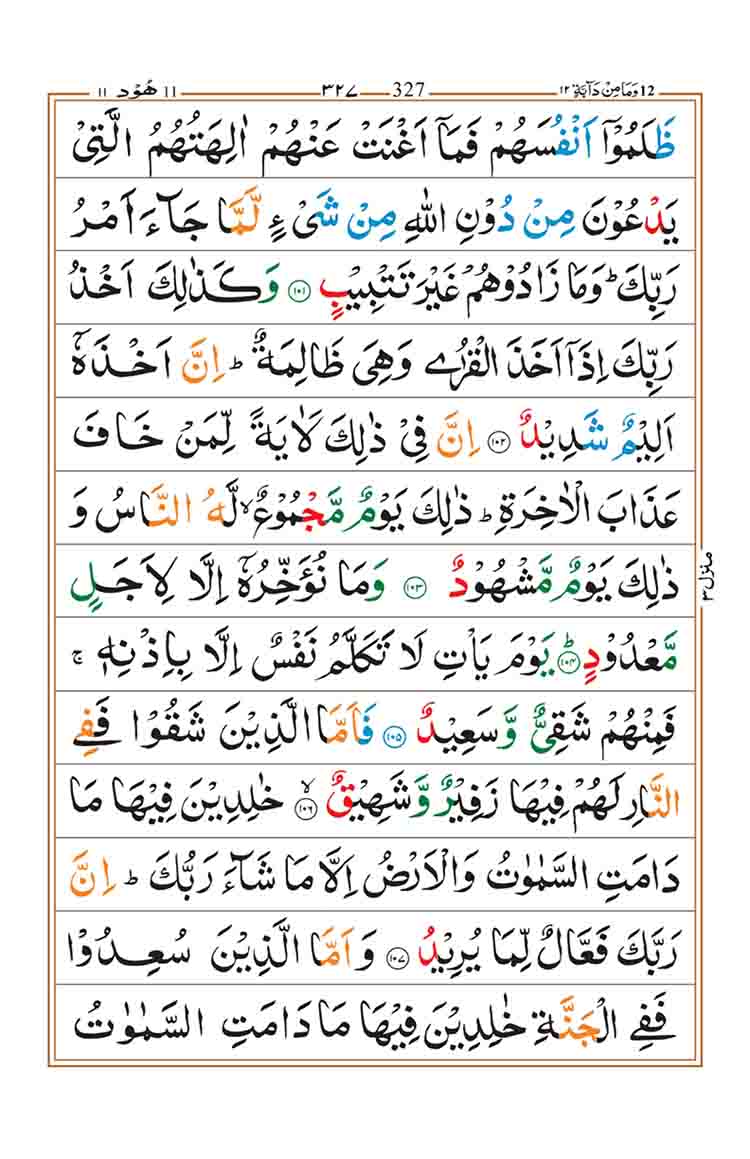 12 وَمَا مِنْ دَآبَّةٍ ١٢ 327 ٣٢٧ 11 هُوْد ١١
ظَلَمُوْۤا اَنْفُسَهُمْ فَمَاۤ اَغْنَتْ عَنْهُمْ اٰلِهَتُهُمُ الَّتِيْ
يَدْعُوْنَ مِنْ دُوْنِ اللّٰهِ مِنْ شَيْءٍ لَّمَّا جَآءَ اَمْرُ
رَبِّكَ ؕ وَمَا زَادُوْهُمْ غَيْرَ تَتْبِيْبٍ ۝١٠١ وَكَذٰلِكَ اَخْذُ
رَبِّكَ اِذَاۤ اَخَذَ الْقُرٰى وَهِيَ ظَالِمَةٌ ؕ اِنَّ اَخْذَهٗۤ
اَلِيْمٌ شَدِيْدٌ ۝١٠٢ اِنَّ فِيْ ذٰلِكَ لَاٰيَةً لِّمَنْ خَافَ
عَذَابَ الْاٰخِرَةِ ؕ ذٰلِكَ يَوْمٌ مَّجْمُوْعٌ ۙ لَّهُ النَّاسُ وَ
ذٰلِكَ يَوْمٌ مَّشْهُوْدٌ ۝١٠٣ وَمَا نُؤَخِّرُهٗۤ اِلَّا لِاَجَلٍ
مَّعْدُوْدٍ ؕ ۝١٠٤ يَوْمَ يَاْتِ لَا تَكَلَّمُ نَفْسٌ اِلَّا بِاِذْنِهٖ ۚ
فَمِنْهُمْ شَقِيٌّ وَّسَعِيْدٌ ۝١٠٥ فَاَمَّا الَّذِيْنَ شَقُوْا فَفِي
النَّارِ لَهُمْ فِيْهَا زَفِيْرٌ وَّشَهِيْقٌ ۙ ۝١٠٦ خٰلِدِيْنَ فِيْهَا مَا
دَامَتِ السَّمٰوٰتُ وَالْاَرْضُ اِلَّا مَا شَآءَ رَبُّكَ ؕ اِنَّ
رَبَّكَ فَعَّالٌ لِّمَا يُرِيْدُ ۝١٠٧ وَاَمَّا الَّذِيْنَ سُعِدُوْا
فَفِي الْجَنَّةِ خٰلِدِيْنَ فِيْهَا مَا دَامَتِ السَّمٰوٰتُ
منزل ٣